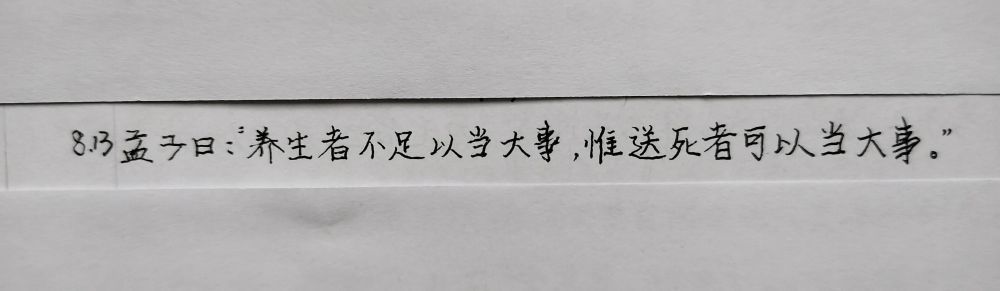 8.13 孟子曰：“养生者不足以当大事，惟送死者可以当大事。”